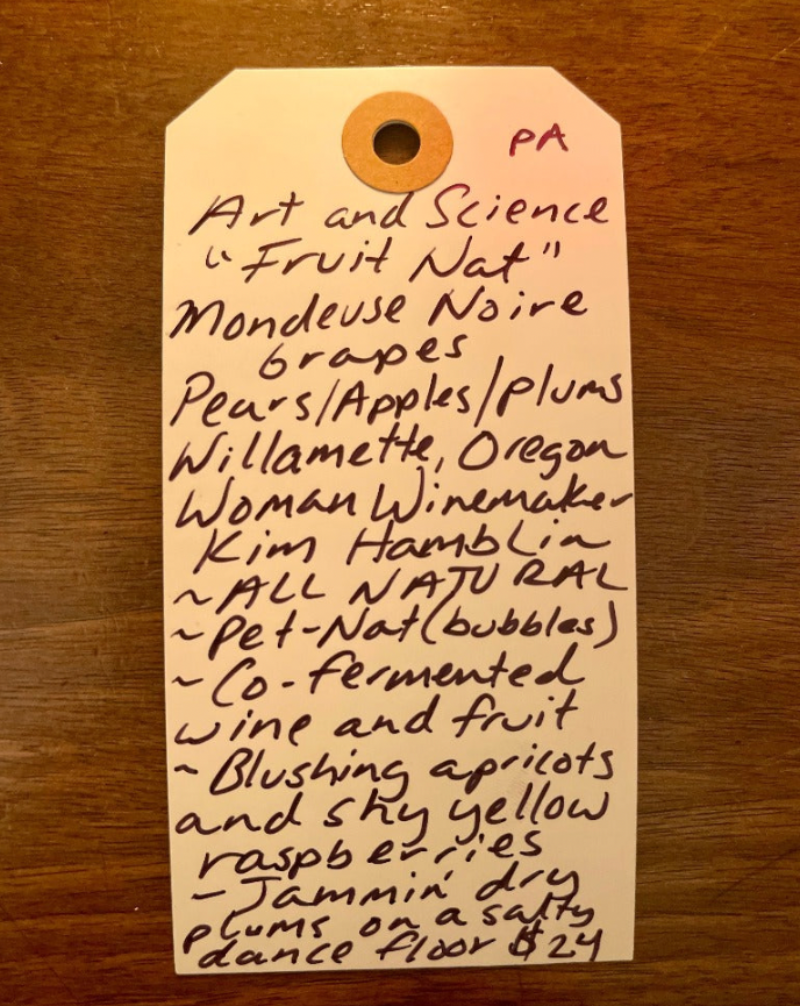 PA
Art and Science
"Fruit Nat"
Mondeuse Noire
Grapes
Pears/Apples/plums
Willamette, Oregon
Woman Winemaker
Kim Hamblin
~ALL NATURAL
~Pet-Nat (bubbles)
~Co-fermented
wine and fruit
~Blushing apricots
and shy yellow
raspberries
~Jammin' dry
plums on a salty
dance floor $24